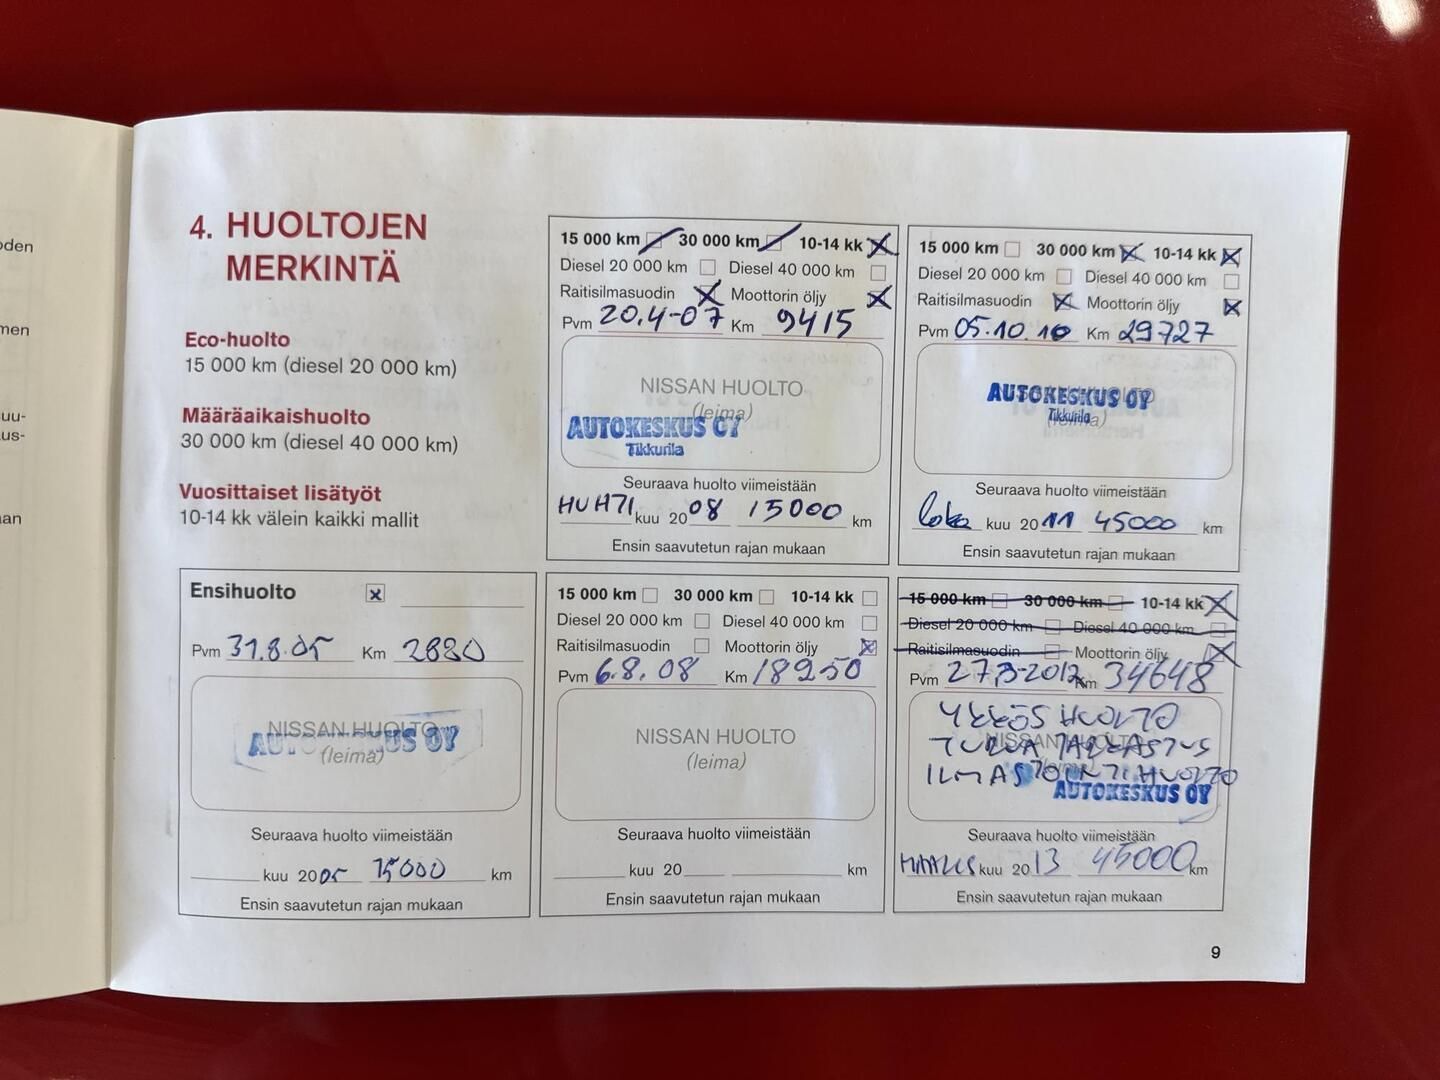 oden
men
uu-
us-
aan
4. HUOLTOJEN
MERKINTÄ
Eco-huolto
15 000 km (diesel 20 000 km)
Määräaikaishuolto
30 000 km (diesel 40 000 km)
Vuosittaiset lisätyöt
10-14 kk välein kaikki mallit
Ensihuolto
Pvm 31.8.05 Km 2880
NISSAN HUOLTO
(leima)
AUTOKESKUS OY
Seuraava huolto viimeistään
kuu 2005 15000 km
Ensin saavutetun rajan mukaan
15 000 km 30 000 km 10-14 kk
Diesel 20 000 km Diesel 40 000 km
Raitisilmasuodin Moottorin öljy
Pvm 20.4-07 Km 9415
NISSAN HUOLTO
(leima)
AUTOKESKUS OY
Tikkurila
Seuraava huolto viimeistään
HUHTI kuu 2008 15000 km
Ensin saavutetun rajan mukaan
15 000 km 30 000 km 10-14 kk
Diesel 20 000 km Diesel 40 000 km
Raitisilmasuodin Moottorin öljy
Pvm 6.8.08 Km 18950
NISSAN HUOLTO
(leima)
Seuraava huolto viimeistään
kuu 20 km
Ensin saavutetun rajan mukaan
15 000 km 30 000 km 10-14 kk
Diesel 20 000 km Diesel 40 000 km
Raitisilmasuodin Moottorin öljy
Pvm 05.10.10 Km 29727
AUTOKESKUS OY
Tikkurila
(leima)
Seuraava huolto viimeistään
loka kuu 2011 45000 km
Ensin saavutetun rajan mukaan
15 000 km 30 000 km 10-14 kk
Diesel 20 000 km Diesel 40 000 km
Raitisilmasuodin Moottorin öljy
Pvm 27.3-2012 Km 34648
YKKÖS HUOLTO
TURVA TARKASTUS
NISSAN HUOLTO
ILMASTOINTI HUOLTO
AUTOKESKUS OY
Seuraava huolto viimeistään
MAALIS kuu 2013 45000 km
Ensin saavutetun rajan mukaan
9